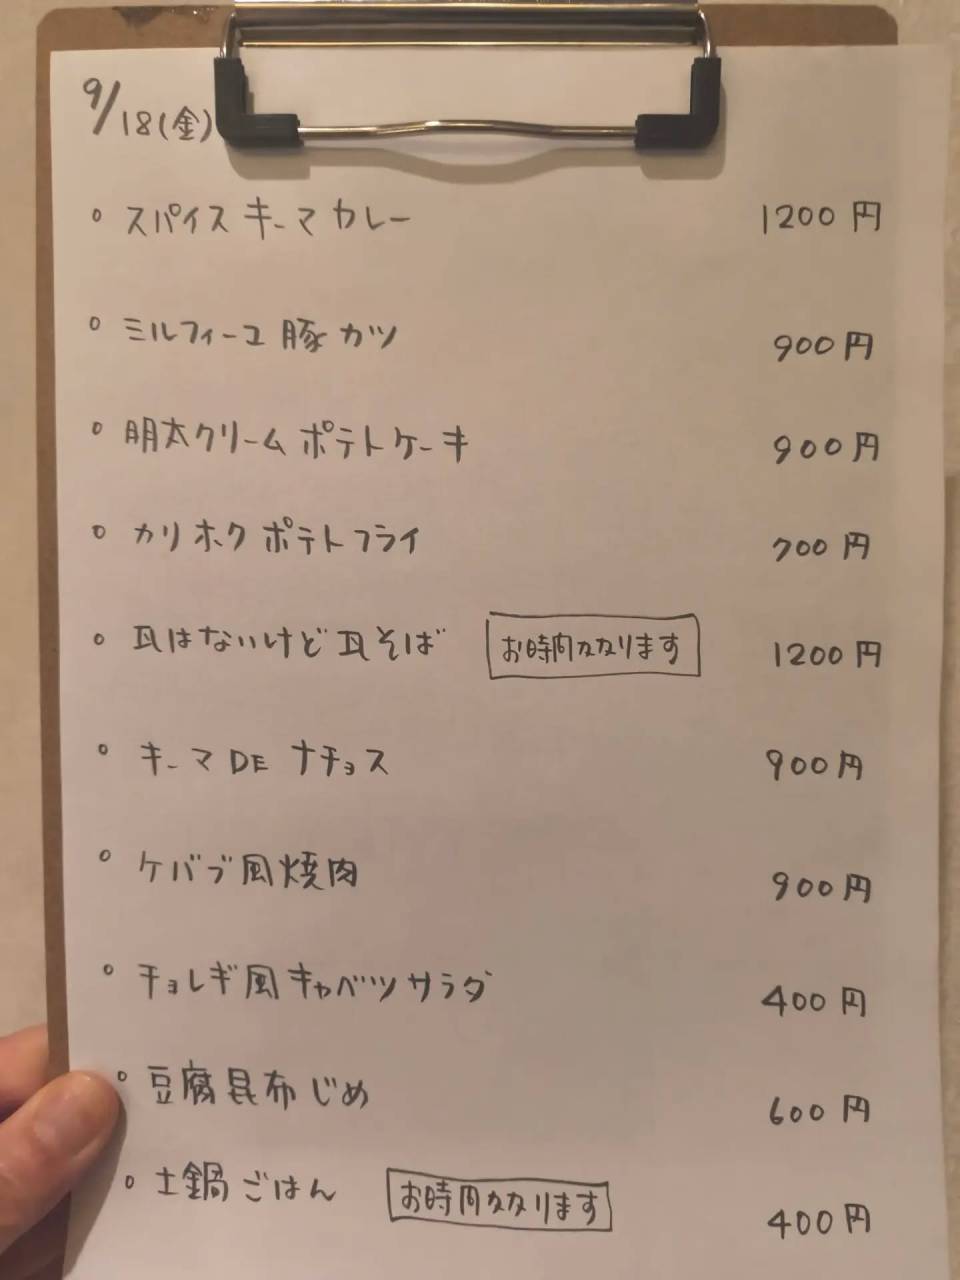 9/18(金)
○ スパイスキーマカレー 1200円
○ ミルフィーユ豚カツ 900円
○ 明太クリームポテトケーキ 900円
○ カリホクポテトフライ 700円
○ 瓦はないけど瓦そば お時間かかります 1200円
○ キーマDEナチョス 900円
○ ケバブ風焼肉 900円
○ チョレギ風キャベツサラダ 400円
○ 豆腐昆布じめ 600円
○ 土鍋ごはん お時間かかります 400円